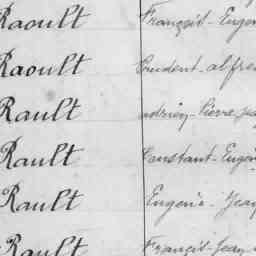 Raoult François-Eugen
Raoult Prudent-alfre
Rault adrien-Pierre-jea
Rault Constant-Eugèn
Rault Eugène-Jean
Rault François-Jean